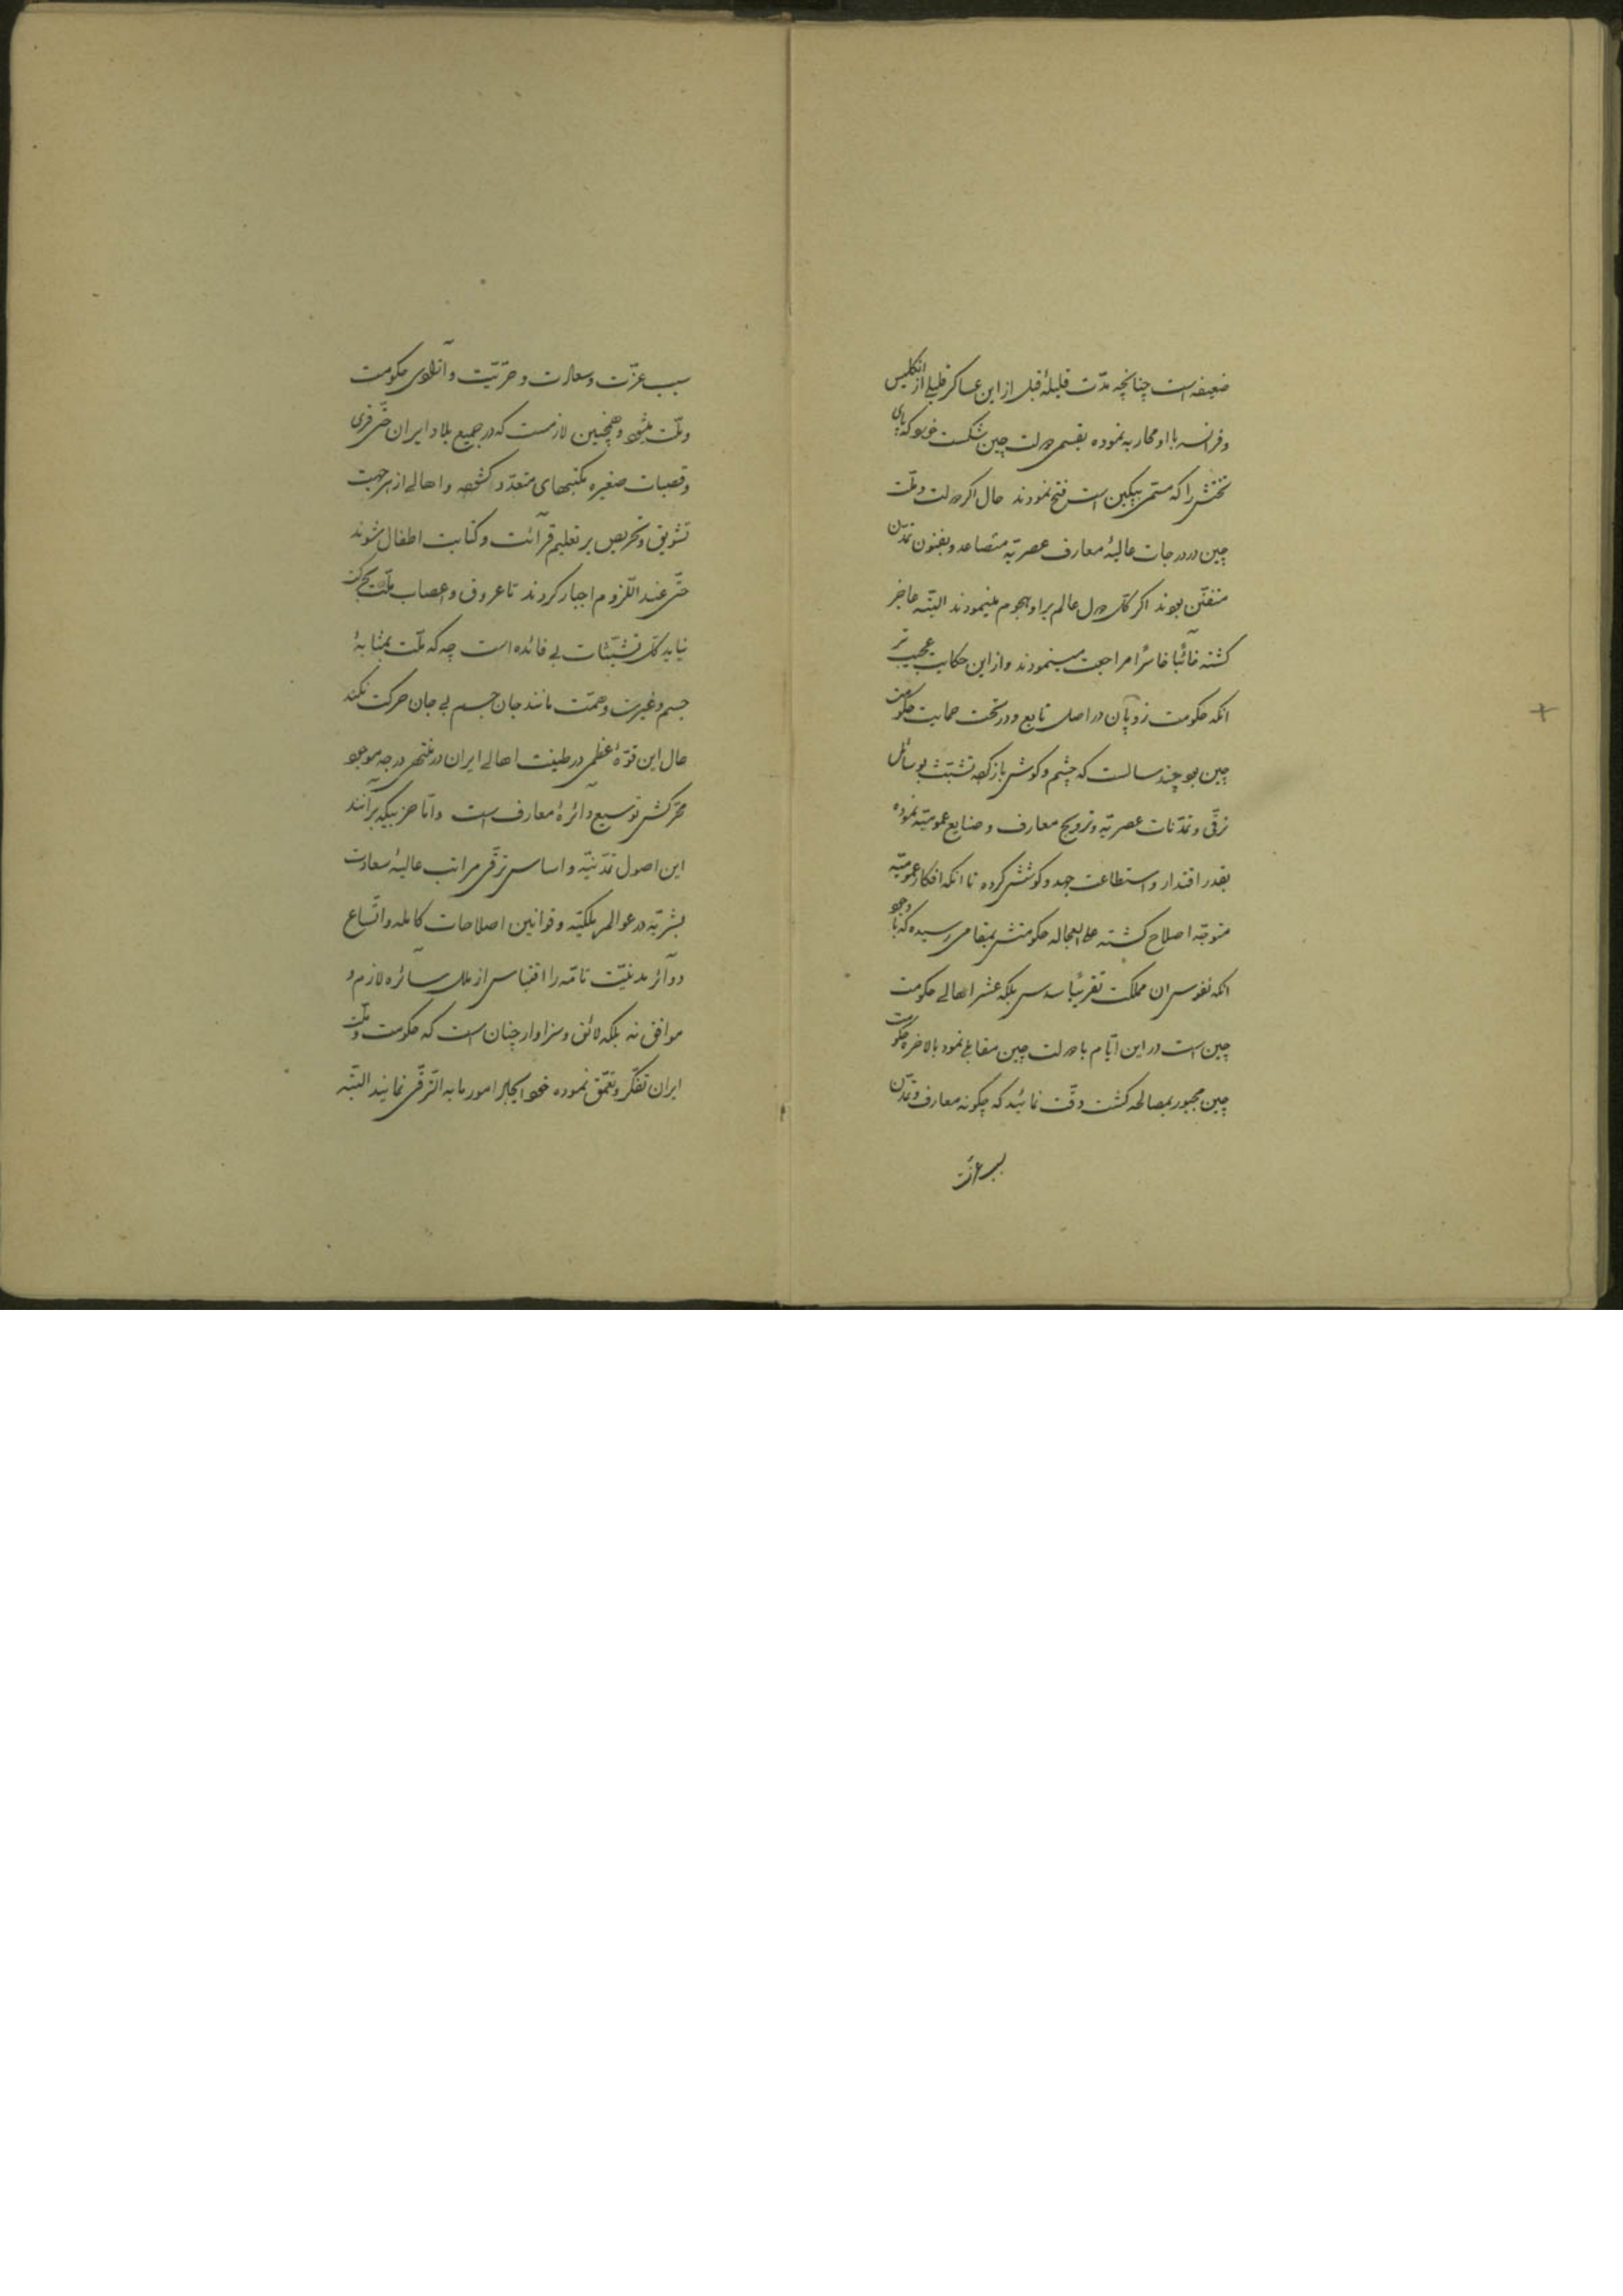 ضعیفه است چنانچه مدّت قلیلهٔ قبل از این عساکر قلیلی از انگلیس
و فرانسه با او محاربه نموده بقسمی دولت چین شکست خورد که پای
تختش را که مسمّی بپیکین است فتح نمودند حال اکر دولت و ملّت
چین در درجات عالیهٔ معارف عصریّه متصاعد و بفنون تمدّن
متفنّن بودند اکر کلّ دول عالم بر او هجوم مینمودند البتّه عاجز
کشته خائبًا خاسرًا مراجعت مینمودند و از این حکایت عجیب تر
انکه حکومت ژوپآن در اصل تابع و در تحت حمایت حکومت
چین بود چند سالست که چشم و کوش باز کرده تشبّث بوسائل
ترقّی و تمدّنات عصریّه و ترویج معارف و صنایع عمومیّه نموده
بقدر اقتدار و استطاعت جهد و کوشش کرده تا انکه افکار عمومیّه
متوجّه اصلاح کشته علی العجاله حکومتش بمقامی رسیده که با وجود
انکه نفوس ان مملکت تقریبًا سدس بلکه عشر اهالی حکومت
چین است در این ایّام با دولت چین مقابلی نمود بالاخره حکومت
چین مجبور بمصالحه کشت دقّت نمائید که چکونه معارف و تمدّن
سبب عزّت
سبب عزّت و سعادت و حرّیّت و آزادی حکومت
و ملّت میشود و همچنین لازمست که در جمیع بلاد ایران حتّی قری
و قصبات صغیره مکتبهای متعدّد کشوده و اهالی از هر جهت
تشویق و تحریص بر تعلیم قرآئت و کتابت اطفال شوند
حتّی عند اللّزوم اجبار کردند تا عروق و اعصاب ملّت بحرکت
نیاید کلّ تشبّثات بی فائده است چه که ملّت بمثابهٔ
جسم و غیرت و همّت مانند جان جسم بی جان حرکت نکند
حال این قوّهٔ عظمی در طینت اهالی ایران در منتهی درجه موجود
محرّکش توسیع دآئرهٔ معارف است و امّا حزبیکه برآنند
این اصول تمدّنیّه و اساس ترقّی مراتب عالیهٔ سعادت
بشریّه در عوالم ملکیّه و قوانین اصلاحات کامله و اتّساع
دوآئر مدنیّت تامّه را اقتباس از ملل سآئره لازم و
موافق نه بلکه لائق و سزاوار چنان است که حکومت و ملّت
ایران تفکّر و تعمّق نموده خود ایجاد امور ما به التّرقّی نمایند البتّه